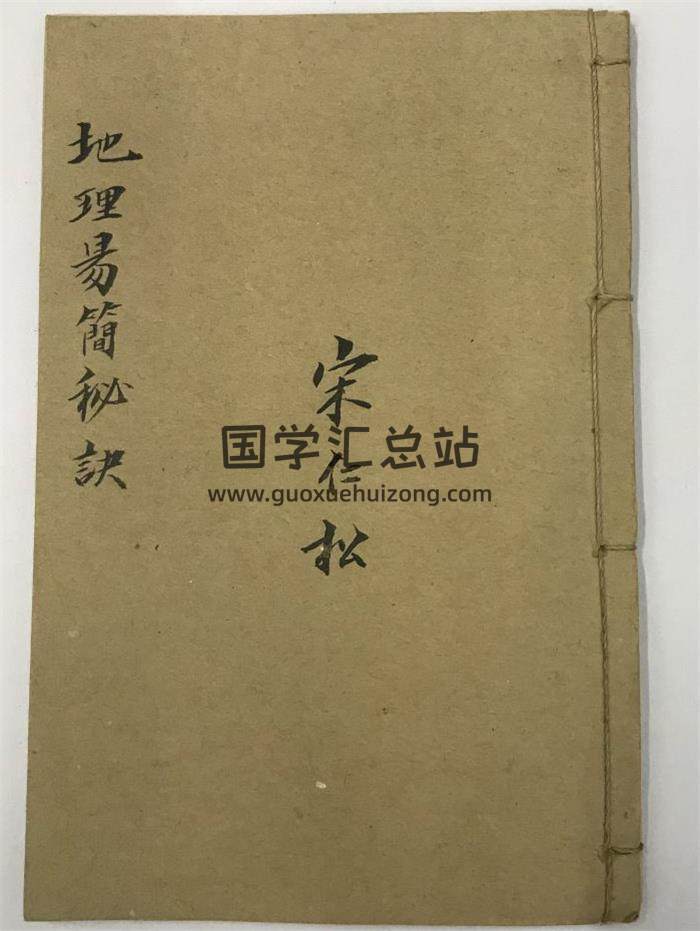 地理易簡秘訣
宋仁松
国学汇总站
www.guoxuehuizong.com